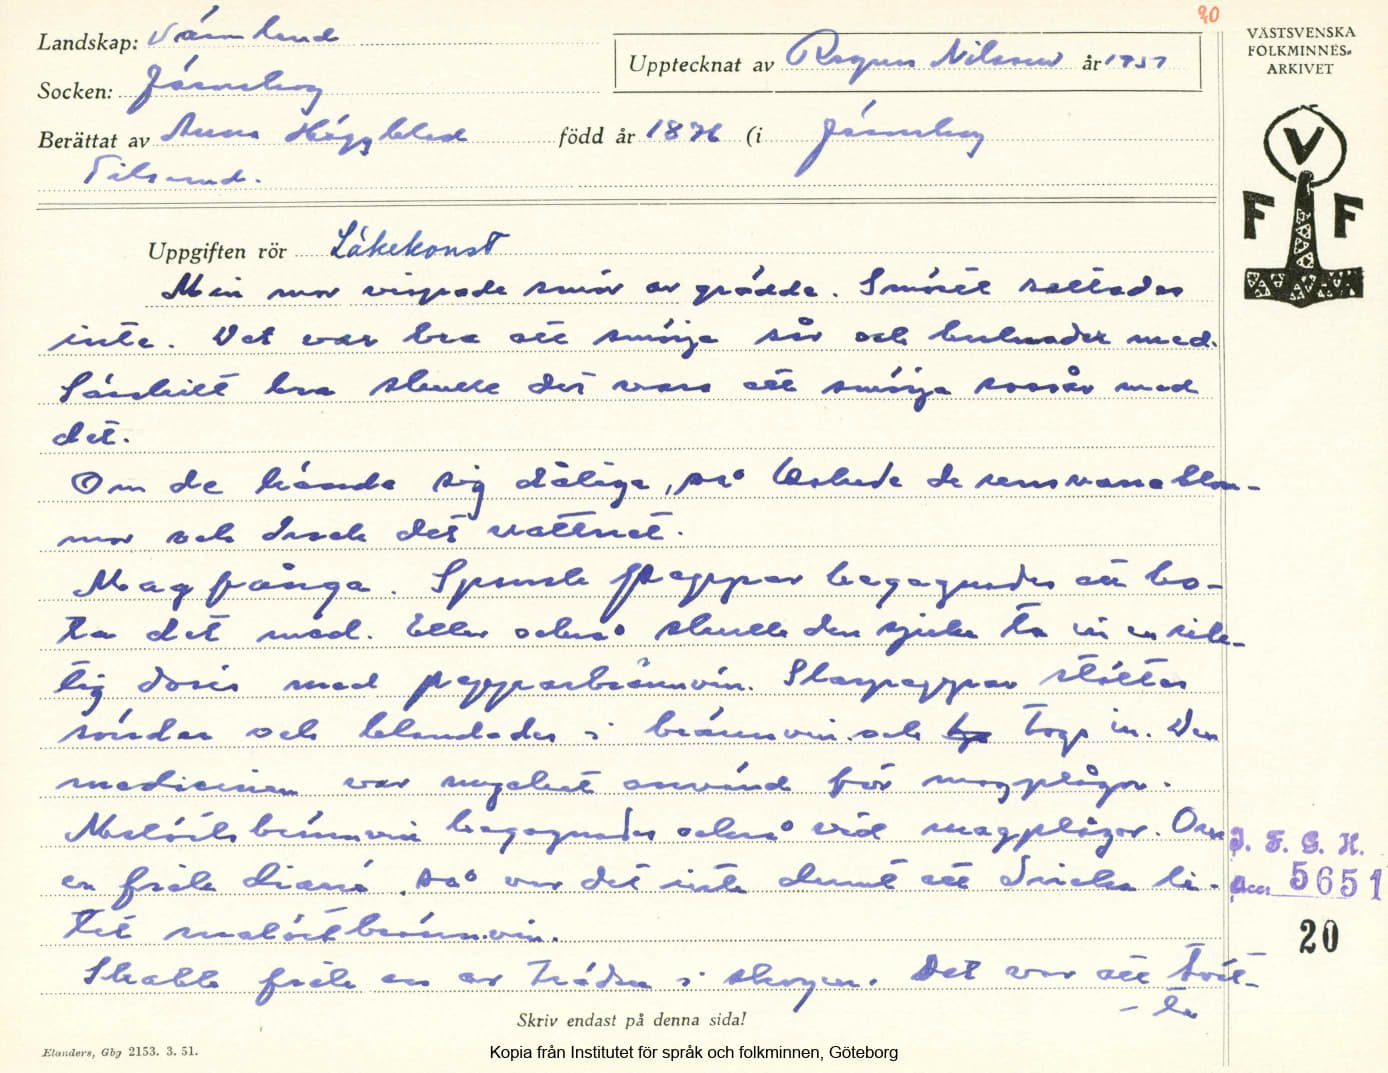 90
Landskap: Värmland
Upptecknat av Ragnar Nilsson år 1951
VÄSTSVENSKA
FOLKMINNES-
ARKIVET
Socken: Järnskog
Berättat av Anna Häggblad född år 1876 (i Järnskog
V
F F
Uppgiften rör Läkekonst
Min mor vispade smör av grädde. Smöret saltades
inte. Det var bra att smörja sår och bulnader med.
Särskilt bra skulle det vara att smörja rossår med
det.
Om de kände sig dåliga, så kokade de rensvaneblom-
mor och drack det vattnet.
Magfånga. Spansk peppar begagnades att bo-
ta det med. Eller också skulle den sjuke ta in en rik-
tig dosis med pepparbrännvin. Starpeppar stöttes
sönder och blandades i brännvin och togs in. Den
medicinen var mycket använd för magplågor.
Malörtsbrännvin begagnades också vid magplågor. Om
en fick diarré, så var det inte dumt att dricka li-
tet malörtbrännvin.
Skabb fick en av träden i skogen. Det var att tvät-
- ta
J. F. G. H.
Acc. 5651
20
Skriv endast på denna sida!
Elanders, Gbg 2153. 3. 51.
Kopia från Institutet för språk och folkminnen, Göteborg